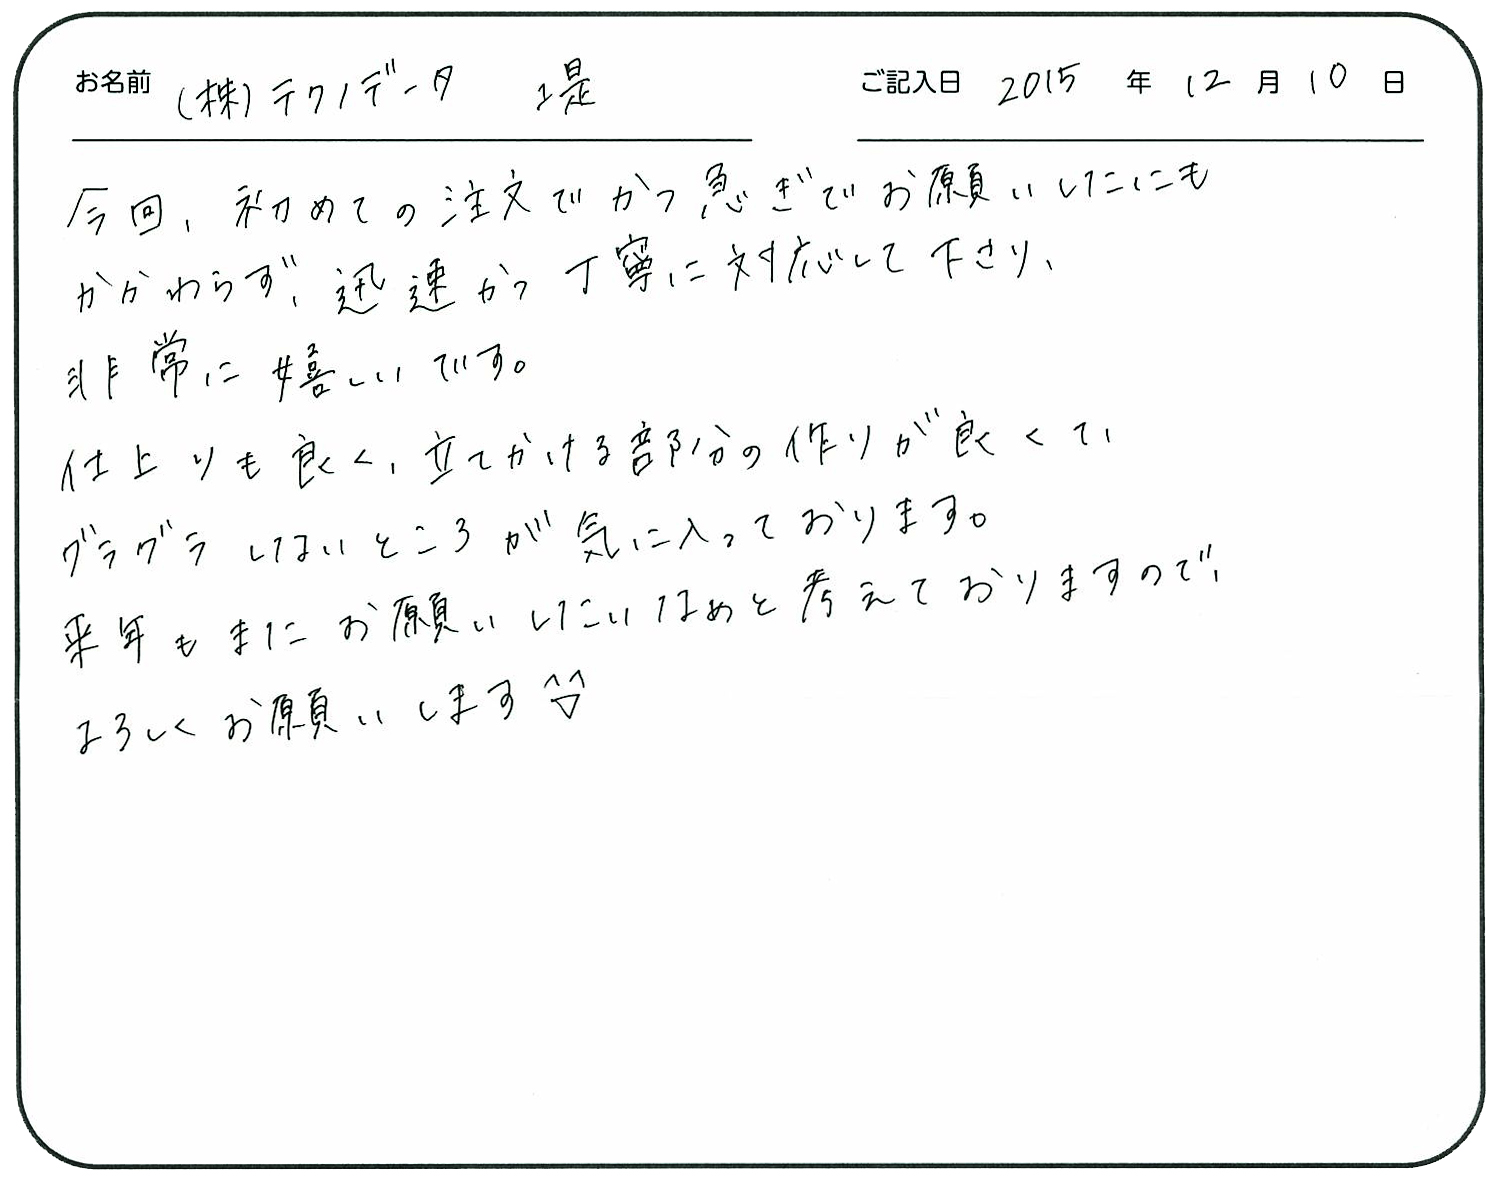 お名前 (株)テクノデータ 堤 ご記入日 2015 年 12 月 10 日
今回、初めての注文でかつ急ぎでお願いしたにも
かかわらず、迅速かつ丁寧に対応して下さり、
非常に嬉しいです。
仕上りも良く、立てかける部分の作りが良くて、
グラグラしないところが気に入っております。
来年もまたお願いしたいなぁと考えておりますので、
よろしくお願いします